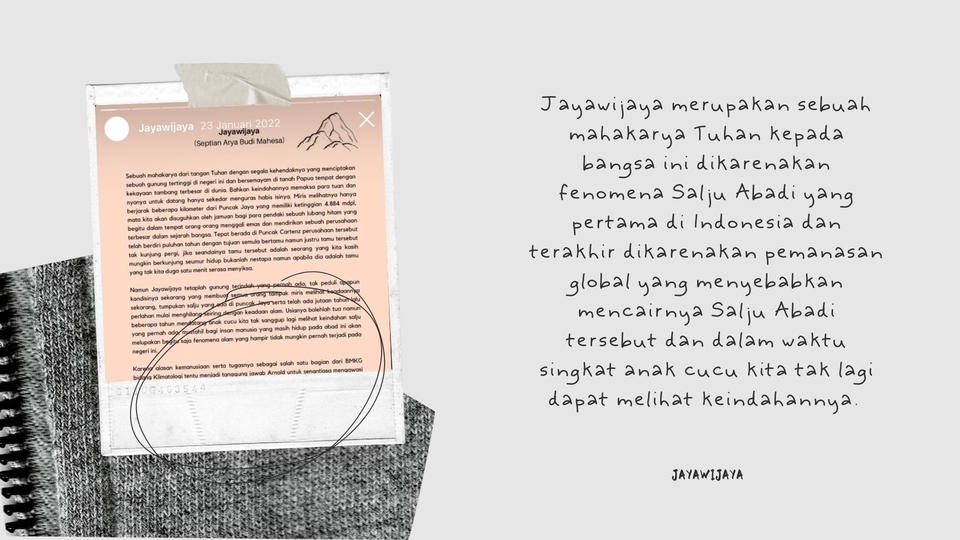 Jayawijaya 23 Januari 2022
Jayawijaya
(Septian Arya Budi Mahesa)
Sebuah mahakarya dari tangan Tuhan dengan segala kehendaknya yang menciptakan
sebuah gunung tertinggi di negeri ini dan bersemayam di tanah Papua tempat dengan
kekayaan tambang terbesar di dunia. Bahkan keindahannya memaksa para tuan dan
nyonya untuk datang hanya sekedar menguras habis isinya. Miris melihatnya hanya
berjarak beberapa kilometer dari Puncak Jaya yang memiliki ketinggian 4.884 mdpl,
mata kita akan disuguhkan oleh jamuan bagi para pendaki sebuah lubang hitam yang
begitu dalam tempat orang-orang menggali emas dan mendirikan sebuah perusahaan
terbesar dalam sejarah bangsa. Tepat berada di Puncak Cartenz perusahaan tersebut
telah berdiri puluhan tahun dengan tujuan semula bertamu namun justru tamu tersebut
tak kunjung pergi, jika seandainya tamu tersebut adalah seorang yang kita kasih
mungkin berkunjung seumur hidup bukanlah nestapa namun apabila dia adalah tamu
yang tak kita duga satu menit serasa menyiksa.
Namun Jayawijaya tetaplah gunung terindah yang pernah ada, tak peduli apapun
kondisinya sekarang yang membuat semua orang tampak miris melihat keadaannya
sekarang, tumpukan salju yang ada di puncak Jaya serta telah ada jutaan tahun lalu
perlahan mulai menghilang seiring dengan keadaan alam. Usianya bolehlah tua namun
beberapa tahun mendatang anak cucu kita tak sanggup lagi melihat keindahan salju
yang pernah ada, mustahil bagi insan manusia yang masih hidup pada abad ini akan
melupakan begitu saja fenomena alam yang hampir tidak mungkin pernah terjadi pada
negeri ini.
Karena alasan kemanusiaan serta tugasnya sebagai salah satu bagian dari BMKG
bidang Klimatologi tentu menjadi tanggung jawab Arnold untuk senantiasa mengawasi
Jayawijaya merupakan sebuah
mahakarya Tuhan kepada
bangsa ini dikarenakan
fenomena Salju Abadi yang
pertama di Indonesia dan
terakhir dikarenakan pemanasan
global yang menyebabkan
mencairnya Salju Abadi
tersebut dan dalam waktu
singkat anak cucu kita tak lagi
dapat melihat keindahannya.
JAYAWIJAYA